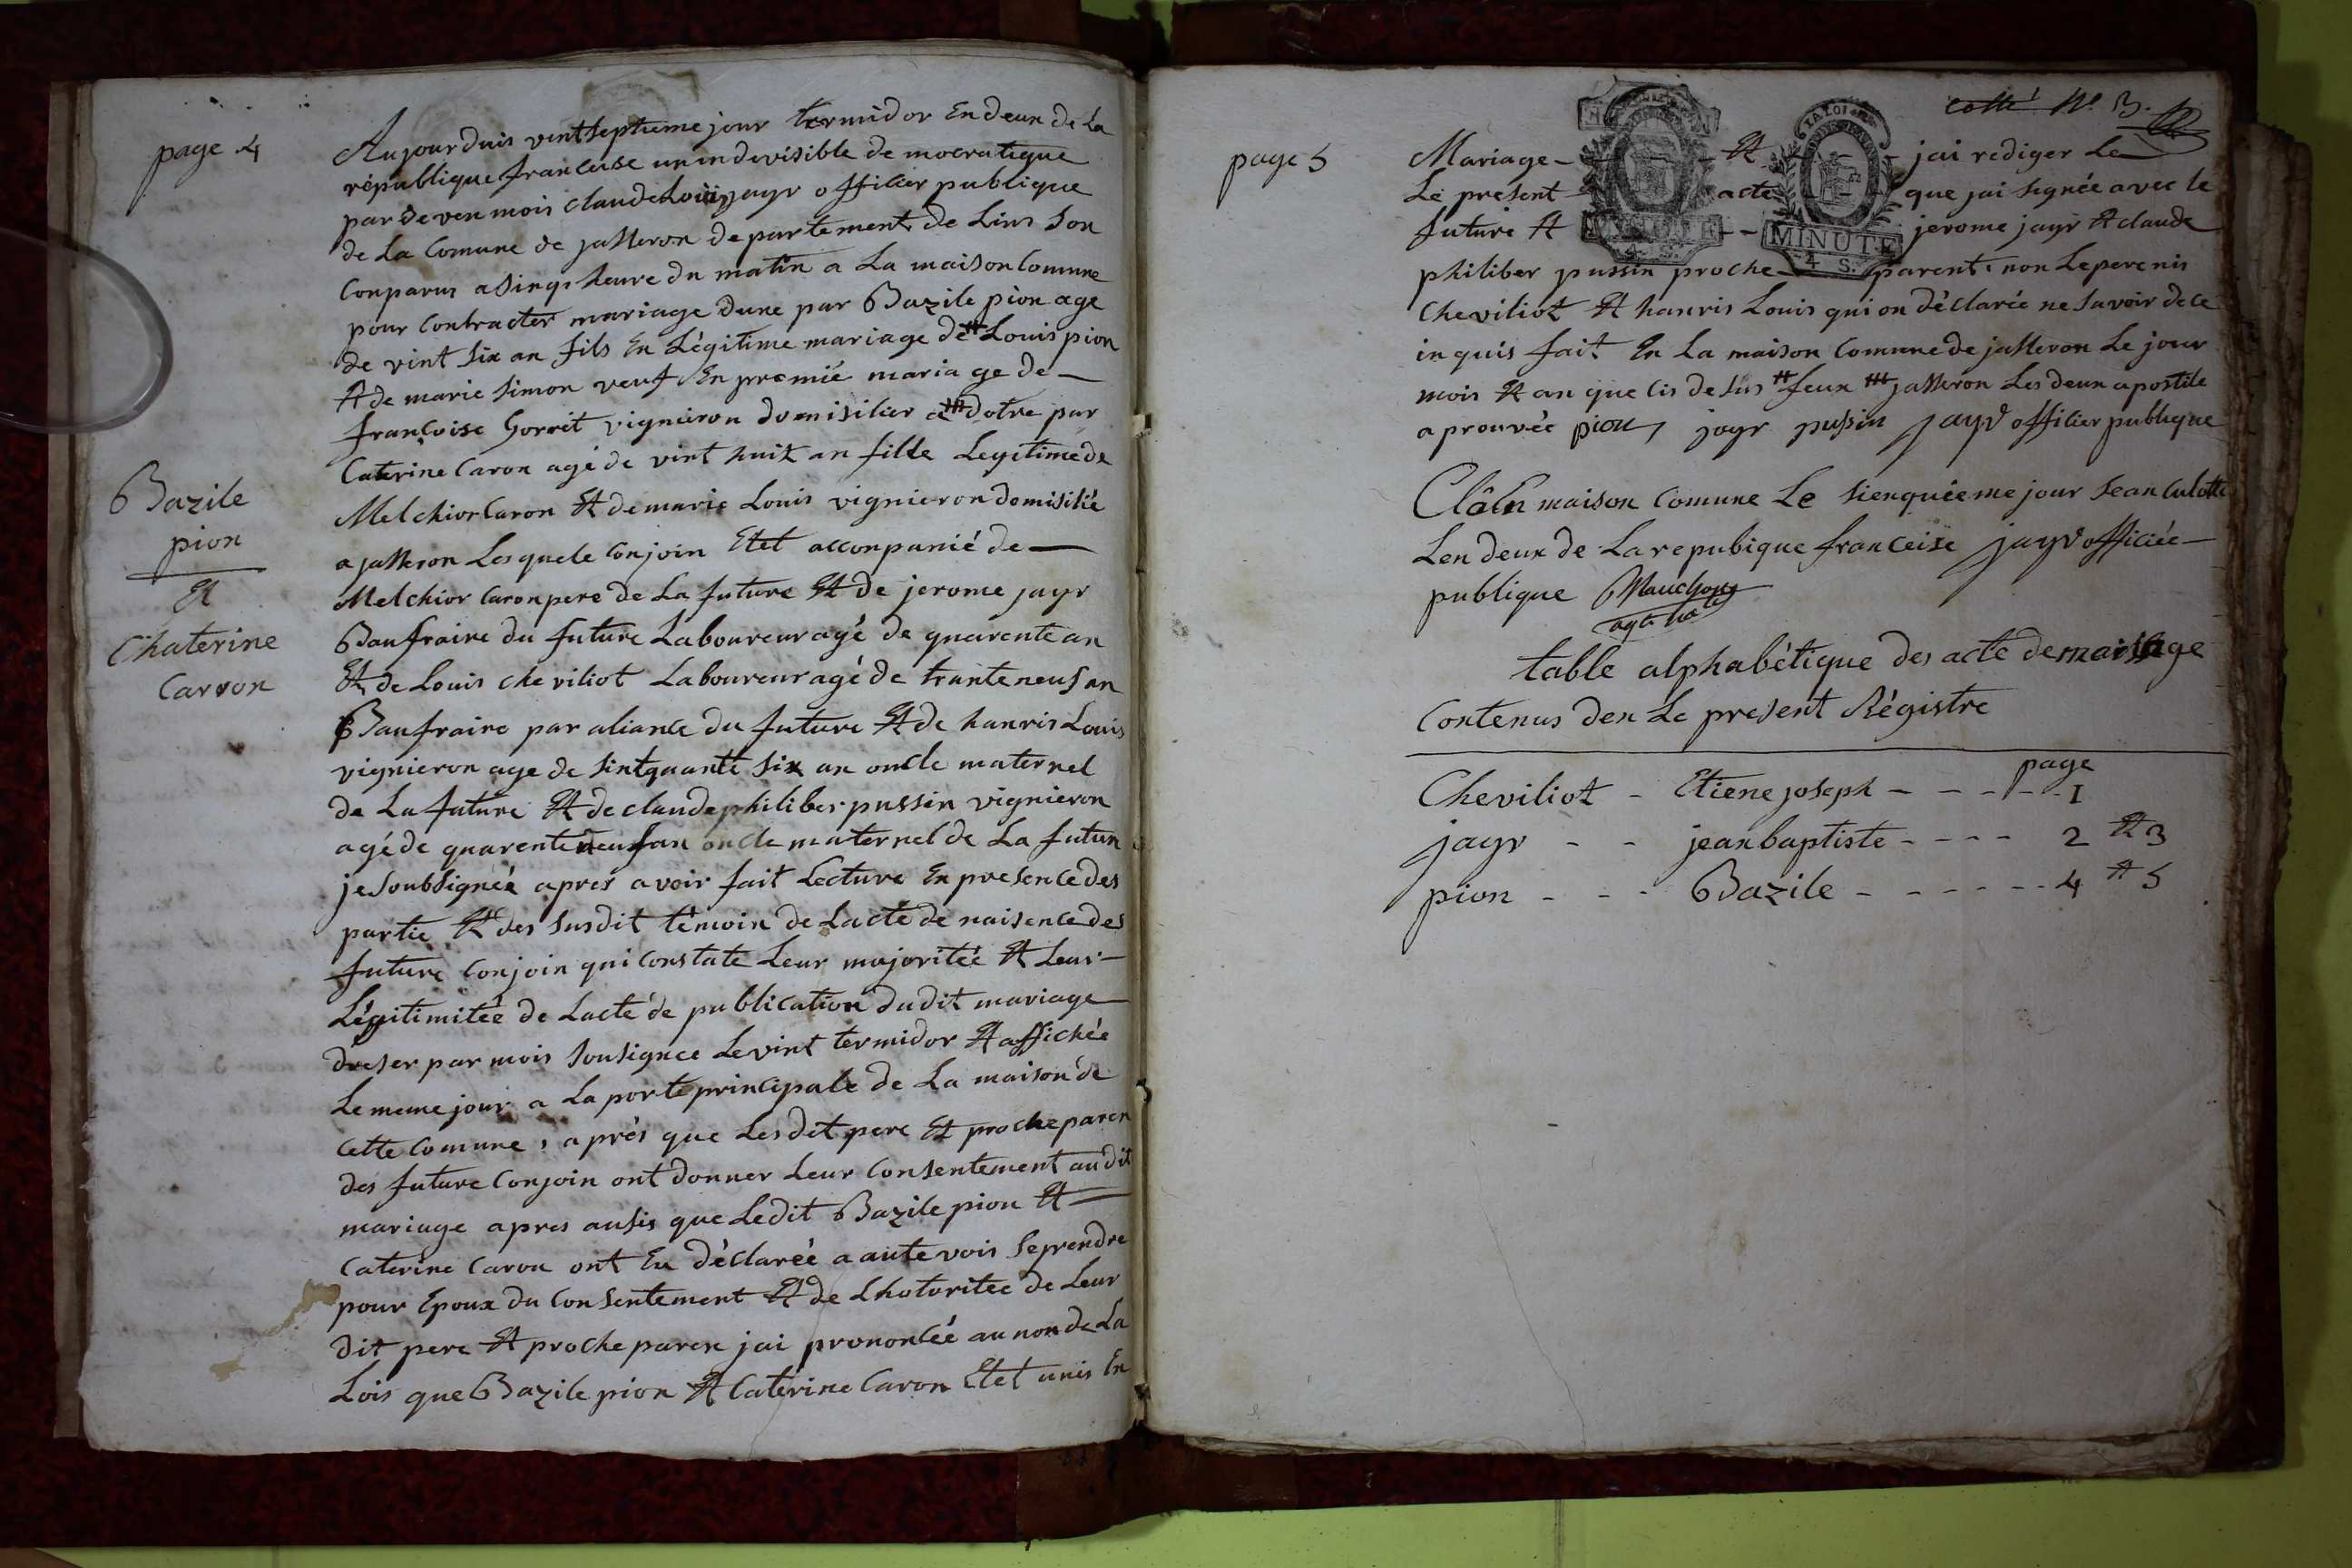 page 4
Bazile
pion
Et
Chaterine
Carron
Aujourduis vintseptieme jour termidor En deux de La
république franceise un indevisible de mocratique
par deven mois claude Louis jayr offilier publique
de La Comune de jasseron departement de Lins Son
Conparus a sinqs heure du matin a La maison Comune
pour Contracter mariage dune par Bazile pion age
de vint six an fils En Légitime mariage de # Louis pion
Et de marie Simon veuf En premié maria ge de —
francoise Gorret vignieron domisilier a ## dotre par
Caterine Caron agé de vint huit an fille Legitime de
Melchior Caron Et de marie Louis vignieron domisilié
a jasseron Lesquele Conjoin Etet acconpanié de —
Melchior Caron pere de La future Et de jerome jayr
Baufraire du future Laboureur agé de quarente an
Et de Louis cheviliot Laboureur agé de trante neuf an
Baufraire par aliance du future Et de hanris Louis
vignieron age de sintquante six an oncle maternel
de La future Et de claude philiber pussin vignieron
agé de quarente neuf an oncle maternel de La future
je Soubsignée apres avoir fait Lecture En presence des
partie Et des susdit témoin de Lacte de naisence des
future Conjoin qui Constate Leur majoritée Et Leur —
Légitimitée de Lacte de publication dudit mariage
dreser par mois Sousignee Le vint termidor Et affichée
Le meme jour a La porte principale de La maison de
Cette Comune, aprés que Lesdit pere Et proche paren
des future Conjoin ont donner Leur Consentement audit
mariage apres ausis que Ledit Bazile pion Et —
Caterine Caron ont Eu déclarée a aute vois Seprendre
pour Epoux du Consentement Et de Lhotoritee de Leur
dit pere Et proche paren jai prononcée au non de La
Lois que Bazile pion Et Caterine Caron Etet unis En
page 5
cotté No 3.
Mariage - - Et - jai rediger Le
Le present acte que jai signée avec le
future Et - - jerome jayr Et claude
LA LOI
MINUTE
4 S.
philiber pussin proche parent. non Le pere nis
Cheviliot Et hanris Louis qui on déclarée ne Savoir de ce
inquis fait En La maison Comune de jasseron Le jour
mois Et an que cis de sus # feux ## jasseron Les deux apostile
a prouvée pion, jayr pussin jayr offilier publique
Clâ En maison Comune Le sienquieeme jour Sean Culotte
Len deux de La repubique franceise jayr officiée —
publique
table alphabétique des acte de mariage
Contenus den Le present Régistre
page
Cheviliot - Etiene joseph - - - - - 1
jayr - - jean baptiste - - - - 2 Et 3
pion - - - Bazile - - - - - - 4 Et 5